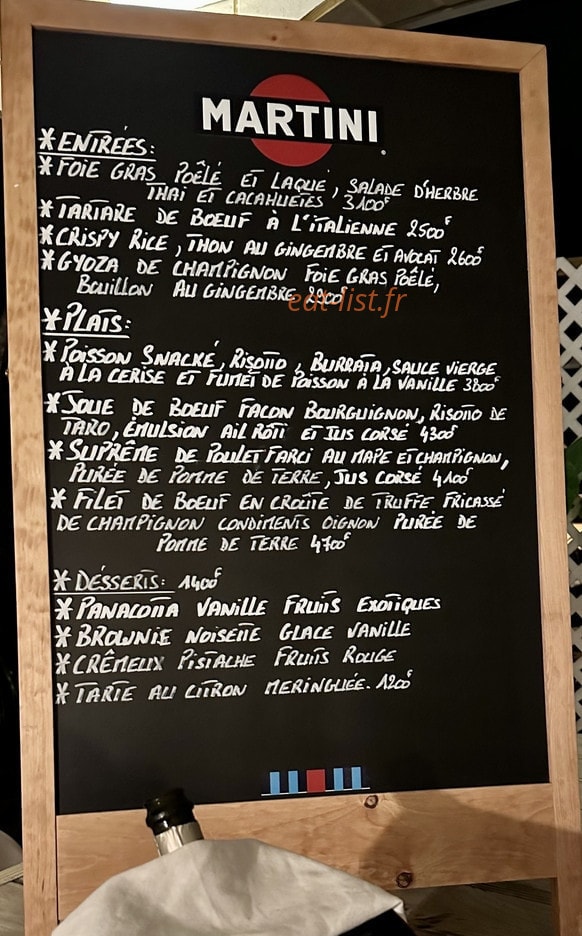 MARTINI
*ENTRÉES:
*FOIE GRAS POÊLÉ ET LAQUÉ, SALADE D'HERBRE
THAÏ ET CACAHUETES 3100F
*TARTARE DE BOEUF À L'ITALIENNE 2500F
*CRISPY RICE, THON AU GINGEMBRE ET AVOCAT 2600F
*GYOZA DE CHAMPIGNON FOIE GRAS POÊLÉ,
BOUILLON AU GINGEMBRE
eat-list.fr
*PLATS:
*POISSON SNACKÉ, RISOTTO, BURRATA, SAUCE VIERGE
À LA CERISE ET FUMET DE POISSON À LA VANILLE 3800F
*JOUE DE BOEUF FACON BOURGUIGNON, RISOTTO DE
TARO, ÉMULSION AIL RÔTI ET JUS CORSÉ 4300F
*SUPRÊME DE POULET FARCI AU MAPE ET CHAMPIGNON,
PURÉE DE POMME DE TERRE, JUS CORSÉ 4100F
*FILET DE BOEUF EN CROÛTE DE TRUFFE FRICASSÉ
DE CHAMPIGNON CONDIMENTS OIGNON PURÉE DE
POMME DE TERRE 4700F
*DÉSSERTS: 1400F
*PANACOTTA VANILLE FRUITS EXOTIQUES
*BROWNIE NOISETTE GLACE VANILLE
*CRÊMEUX PISTACHE FRUITS ROUGE
*TARTE AU CITRON MERINGUÉE. 1200F